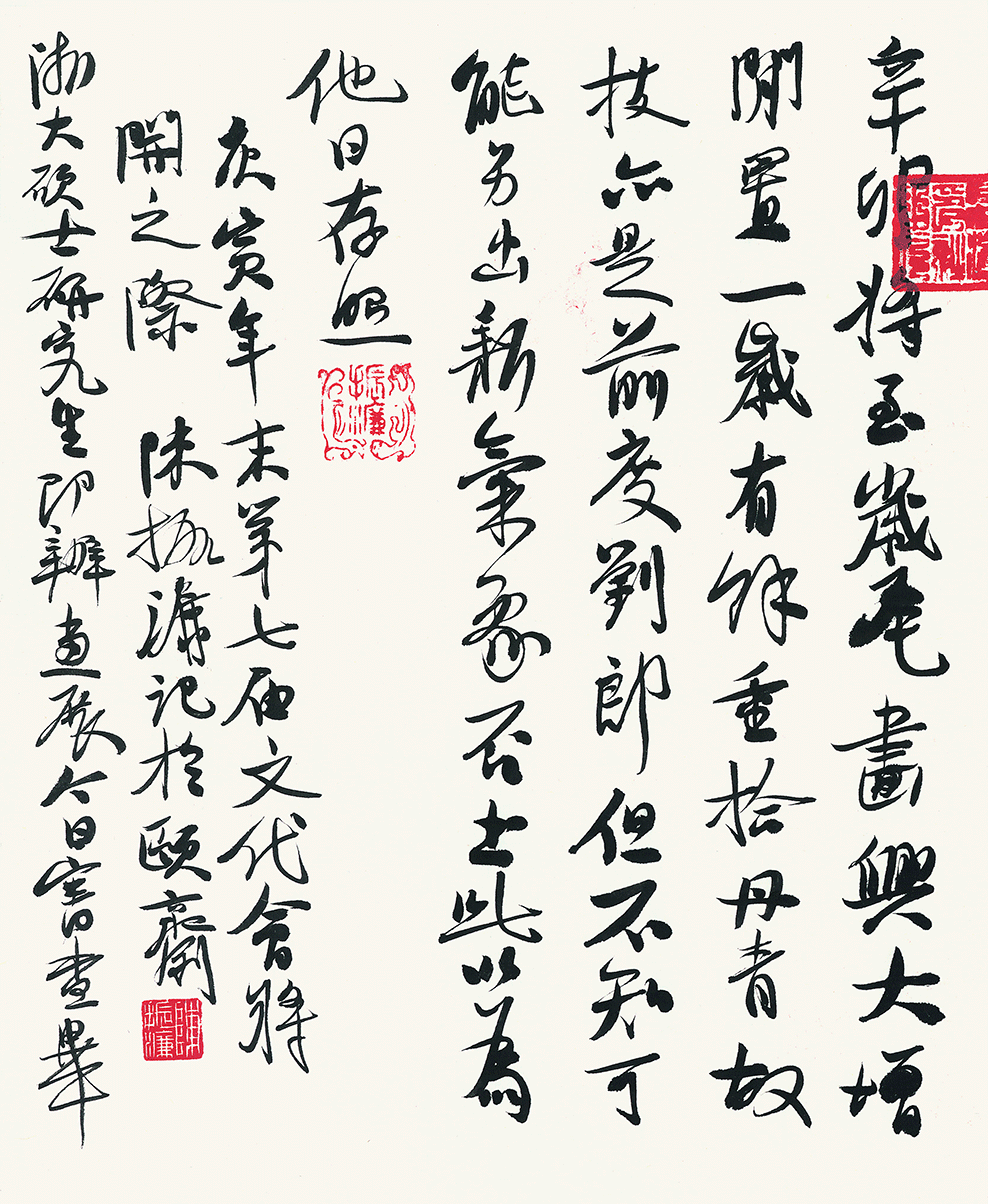 辛卯将至歲尾畫興大增
閒置一歲有餘重拾丹青故
技亦是前度劉郎但不知可
能另出新氣象否此以為
他日存照
庚寅年末第七届文代會將
開之際 陳振濂記於頤齋
陳振濂
浙大硕士研究生即辦畫展今日審查畢